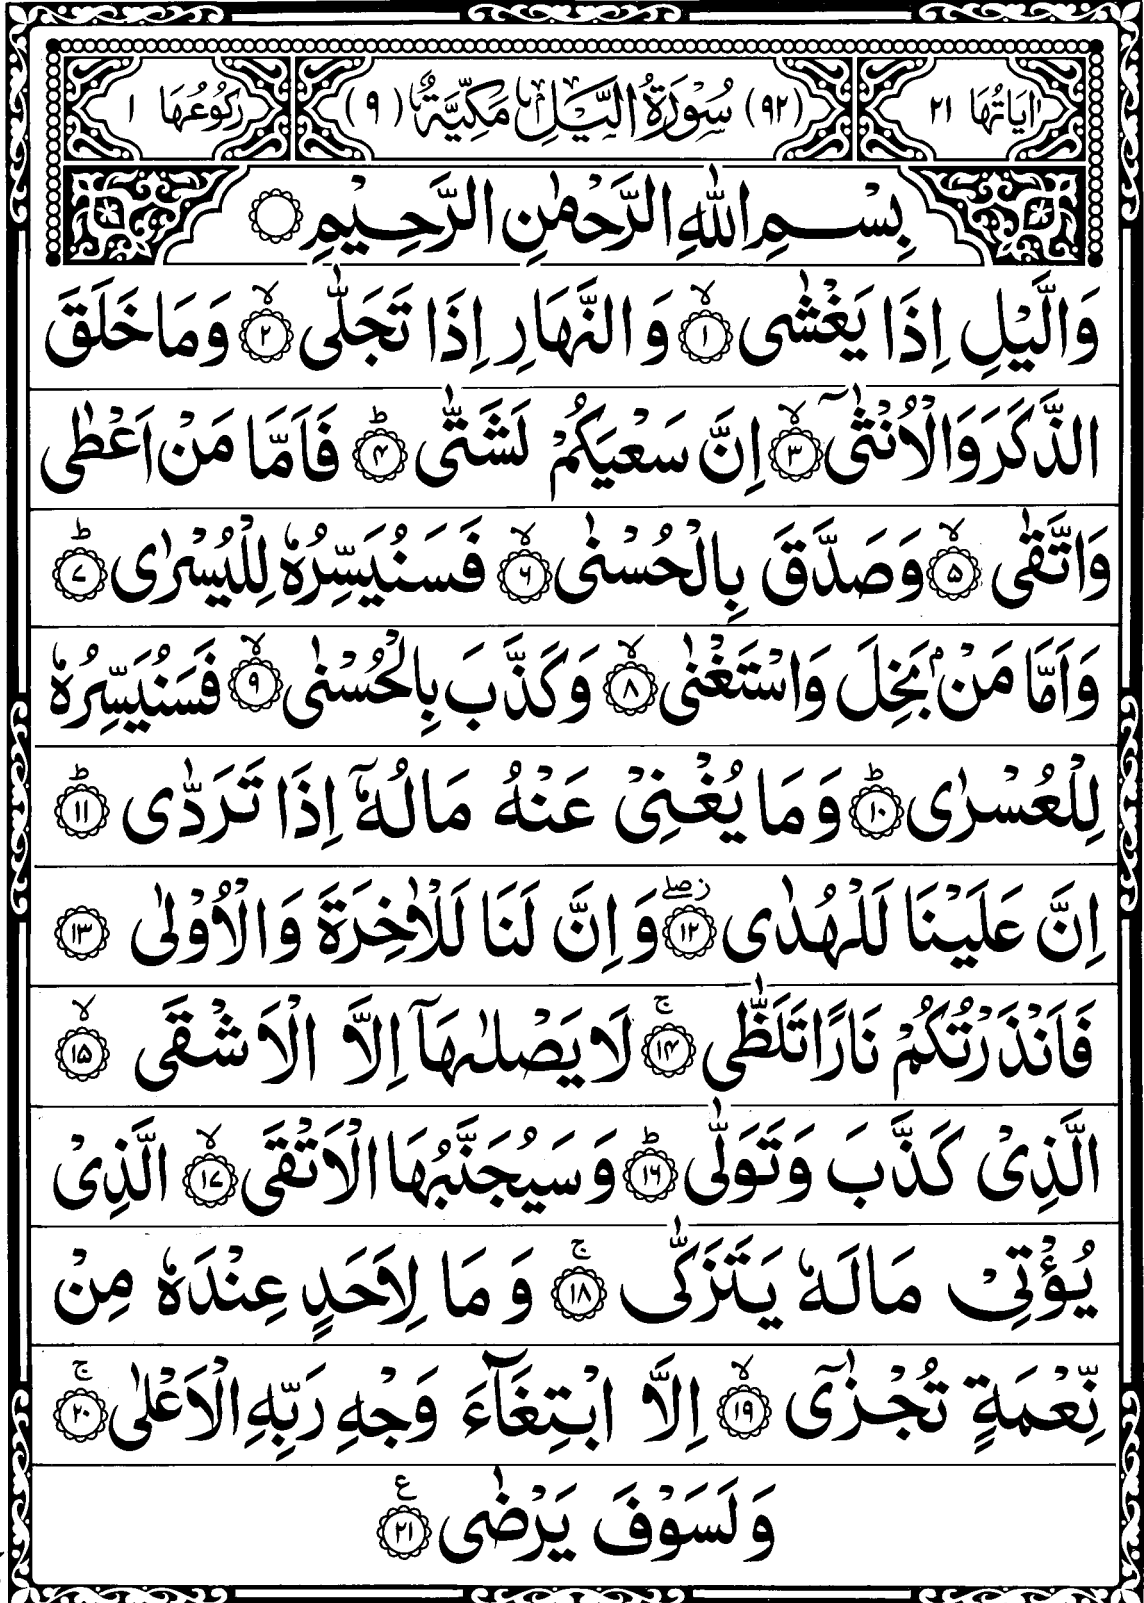 اٰيَاتُهَا ٢١ (٩٢) سُوْرَةُ الَّيْلِ مَكِّيَّةٌ (٩) رُكُوْعُهَا ١
بِسْمِ اللّٰهِ الرَّحْمٰنِ الرَّحِيْمِ
وَالَّيْلِ اِذَا يَغْشٰى ۙ﴿۱﴾ وَالنَّهَارِ اِذَا تَجَلّٰى ۙ﴿۲﴾ وَمَا خَلَقَ
الذَّكَرَ وَالْاُنْثٰۤى ۙ﴿۳﴾ اِنَّ سَعْيَكُمْ لَشَتّٰى ؕ﴿۴﴾ فَاَمَّا مَنْ اَعْطٰى
وَاتَّقٰى ۙ﴿۵﴾ وَصَدَّقَ بِالْحُسْنٰى ۙ﴿۶﴾ فَسَنُيَسِّرُهٗ لِلْيُسْرٰى ؕ﴿۷﴾
وَاَمَّا مَنْۢ بَخِلَ وَاسْتَغْنٰى ۙ﴿۸﴾ وَكَذَّبَ بِالْحُسْنٰى ۙ﴿۹﴾ فَسَنُيَسِّرُهٗ
لِلْعُسْرٰى ؕ﴿۱۰﴾ وَمَا يُغْنِيْ عَنْهُ مَالُهٗۤ اِذَا تَرَدّٰى ؕ﴿۱۱﴾
اِنَّ عَلَيْنَا لَلْهُدٰى ۖز﴿۱۲﴾ وَاِنَّ لَنَا لَلْاٰخِرَةَ وَالْاُوْلٰى ﴿۱۳﴾
فَاَنْذَرْتُكُمْ نَارًا تَلَظّٰى ۚ﴿۱۴﴾ لَا يَصْلٰىهَاۤ اِلَّا الْاَشْقَى ۙ﴿۱۵﴾
الَّذِيْ كَذَّبَ وَتَوَلّٰى ؕ﴿۱۶﴾ وَسَيُجَنَّبُهَا الْاَتْقَى ۙ﴿۱۷﴾ الَّذِيْ
يُؤْتِيْ مَالَهٗ يَتَزَكّٰى ۚ﴿۱۸﴾ وَمَا لِاَحَدٍ عِنْدَهٗ مِنْ
نِّعْمَةٍ تُجْزٰۤى ۙ﴿۱۹﴾ اِلَّا ابْتِغَآءَ وَجْهِ رَبِّهِ الْاَعْلٰى ۚ﴿۲۰﴾
وَلَسَوْفَ يَرْضٰى ع﴿۲۱﴾